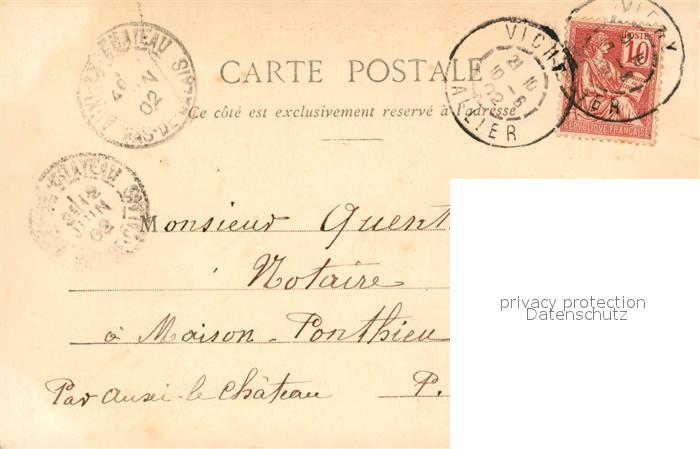 CARTE POSTALE
Ce côté est exclusivement reservé à l'adresse
VICHY
ALLIER
POSTES
10
REPUBLIQUE FRANÇAISE
CHATEAU
PAS-DE-CALAIS
JUIN
02
Monsieur Quent
Notaire
à Maison-Ponthieu
Par Auxi-le-Château P.
privacy protection
Datenschutz